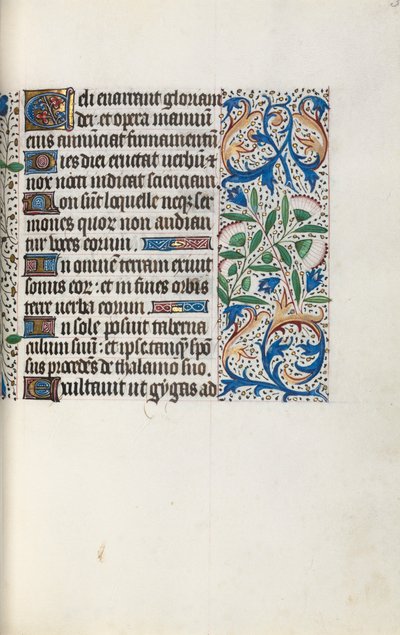 Celi enarrant gloriam
dei: et opera manuũ
eius annũciat firmamentũ
Dies diei eructat verbũ ⁊
nox nocti indicat scienciam
Non sũt loquelle neq̃ ser
mones quor̃ non audian
tur voces eorum.
In omnẽ terram exiuit
sonus eor̃: et in fines orbis
terre verba eorum
In sole posuit taberna
culum suũ: et ipse tanq̃ spõ
sus procedẽs de thalamo suo.
Exultauit ut gygas ad